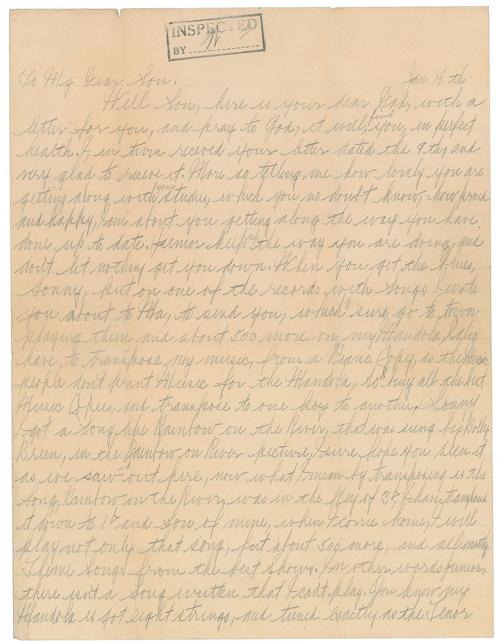 INSPECTED
BY
To My Dear Son.
Jan 16 th.
Well Son, here is your dear Dad, with a
letter for you, and pray to God, it will find you, in perfect
health. I in turn received your letter dated the 9th, and
very glad to receive it. More so telling me how lovely you are
getting along with your studies, which you no doubt know, how proud
and happy, I am about you getting along the way you have
done up to date. Junior keep the way you are doing, and
don't let nothing get you down. When you get the blues,
Sonny, put on one of the records with songs I wrote
you about to Ma, to send you, which I sure go to town
playing them and about 500 more on my Mandola, I also
have to transpose my music, from a Piano Copy, as the music
people don't print Music for the Mandola, so I buy all the hit
Music Copies, and transpose to one key to another. Sonny
I got a song type Rainbow on the River, that was sung by Bobby
Breen, in the Rainbow on River picture, I sure hope you seen it
as we saw it out here, now what I mean by transposing is the
song, Rainbow on the River, was in the Key of 3 I have transposed
it down to 1 and son of mine, when I come home, I will
play not only that song, but about 500 more, and all mostly
Theme Songs from the best Shows. In other words Junior,
there isn't a song written that I can't play. You know my
Mandola is got eight strings, and tuned exactly as the Tenor